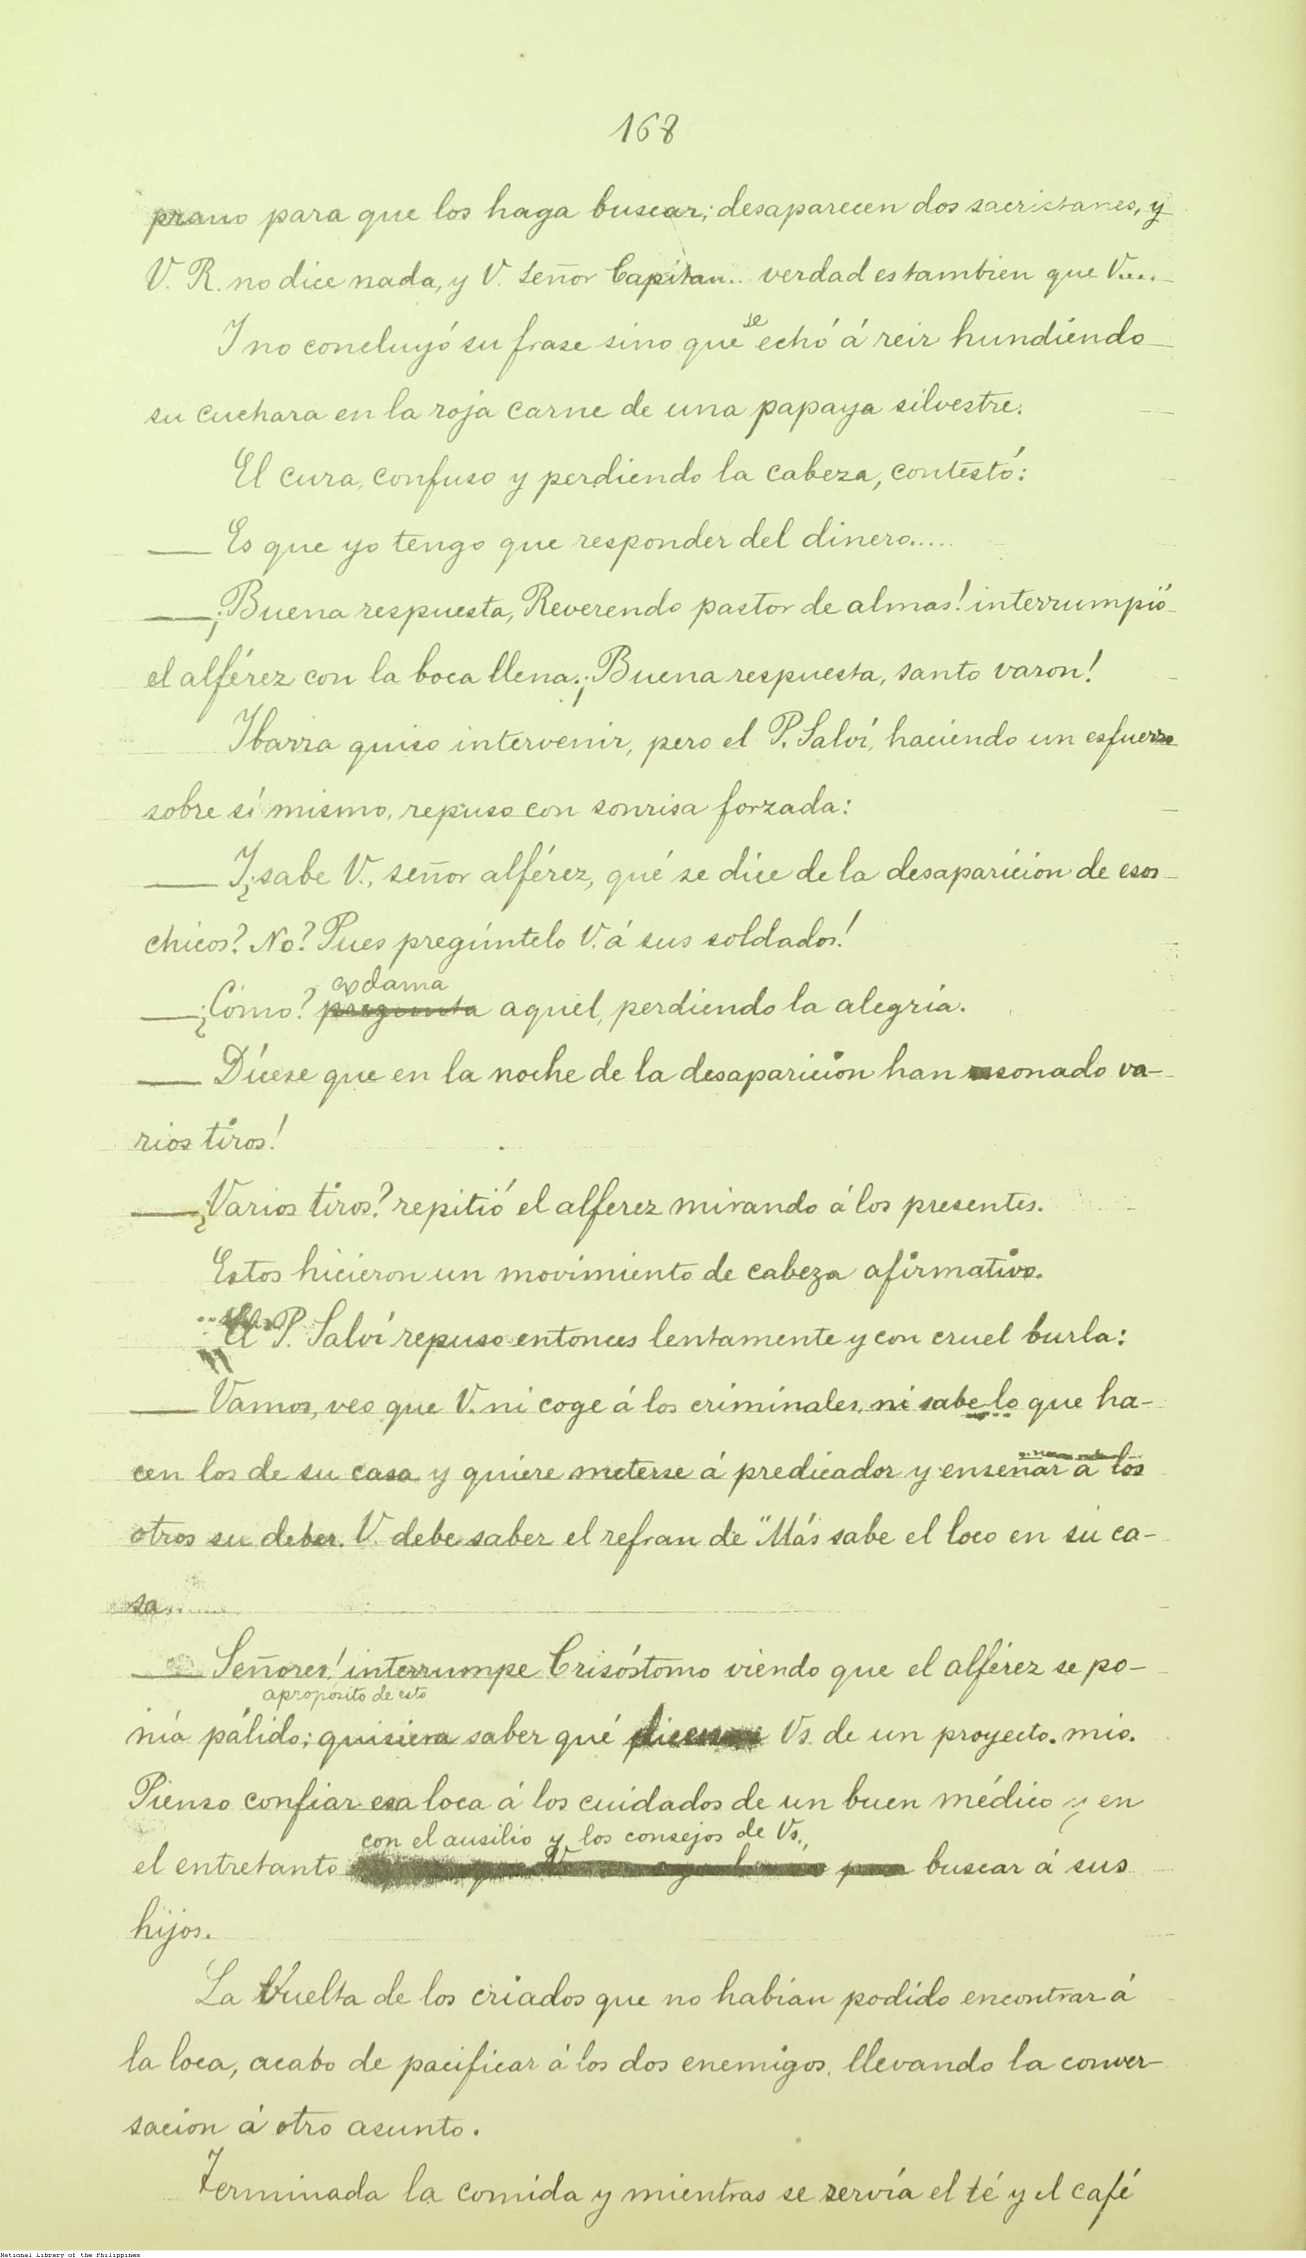 168
prano para que los haga buscar; desaparecen dos sacristanes, y
V. R. no dice nada, y V. señor Capitan... verdad es tambien que V....
Y no concluyó su frase sino que se echó á reir hundiendo
su cuchara en la roja carne de una papaya silvestre.
El cura, confuso y perdiendo la cabeza, contestó:
— Es que yo tengo que responder del dinero.....
— ¡Buena respuesta, Reverendo pastor de almas! interrumpió
el alférez con la boca llena. ¡Buena respuesta, santo varon!
Ibarra quiso intervenir, pero el P. Salví, haciendo un esfuerzo
sobre sí mismo, repuso con sonrisa forzada:
— Y ¿sabe V., señor alférez, qué se dice de la desaparicion de esos
chicos? No? Pues pregúntelo V. á sus soldados!
exclama
— ¿Cómo? pregunta aquel, perdiendo la alegría.
— Dícese que en la noche de la desaparicion han sonado va-
rios tiros!
— ¿Varios tiros? repitió el alferez mirando á los presentes.
Estos hicieron un movimiento de cabeza afirmativo.
El P. Salví repuso entonces lentamente y con cruel burla:
— Vamos, veo que V. ni coge á los criminales, ni sabe lo que ha-
cen los de su casa y quiere meterse á predicador y enseñar á los
otros su deber. V. debe saber el refran de "Más sabe el loco en su ca-
sa.....
— Señores! interrumpe Crisóstomo viendo que el alférez se po-
apropósito de esto
nía pálido; quisiera saber qué dicen Vs. de un proyecto mio.
Pienso confiar esa loca á los cuidados de un buen médico y en
con el ausilio y los consejos de Vs.,
el entretanto buscar á sus
hijos.
La vuelta de los criados que no habían podido encontrar á
la loca, acabo de pacificar á los dos enemigos, llevando la conver-
sacion á otro asunto.
Terminada la comida y mientras se servía el té y el café
National Library of the Philippines